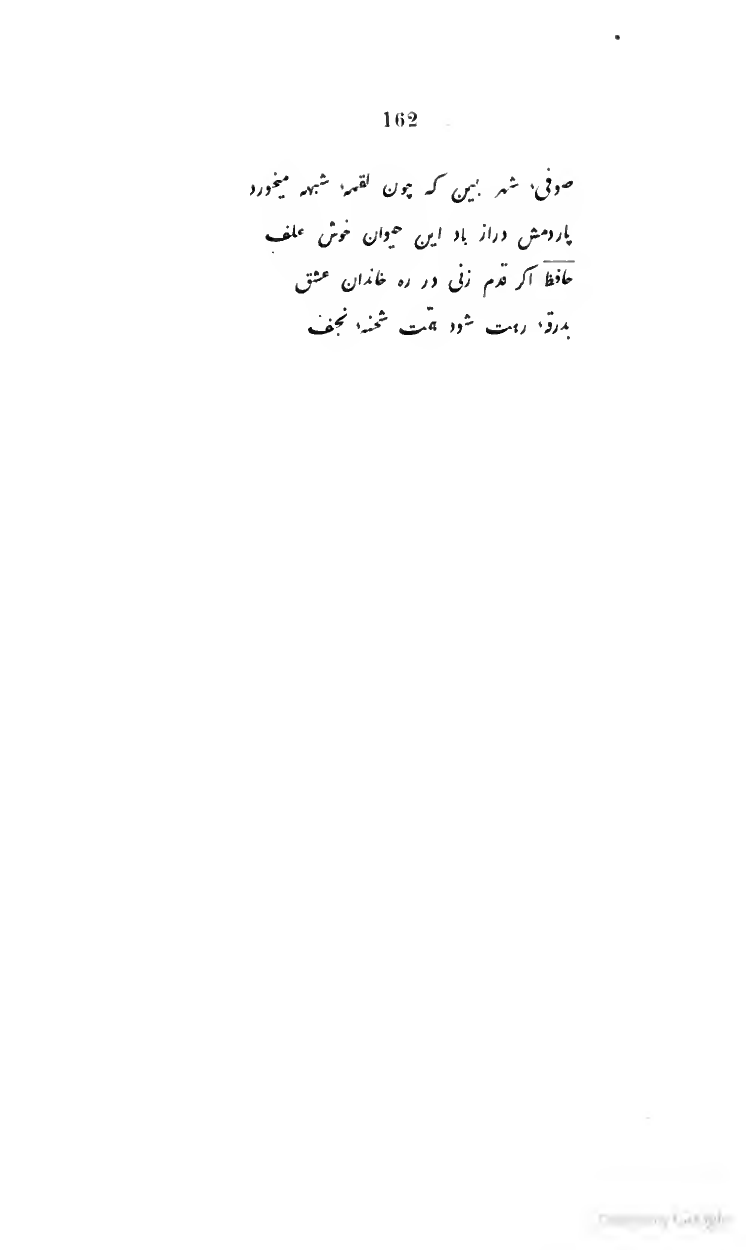 162
صوفیٔ شهر بین که چون لقمهٔ شبهه میخورد
پاردمش دراز باد این حیوان خوش علف
حافظ اکر قدم زنی در ره خاندان عشق
بدرقهٔ رهت شود همّت شحنهٔ نجف
Google